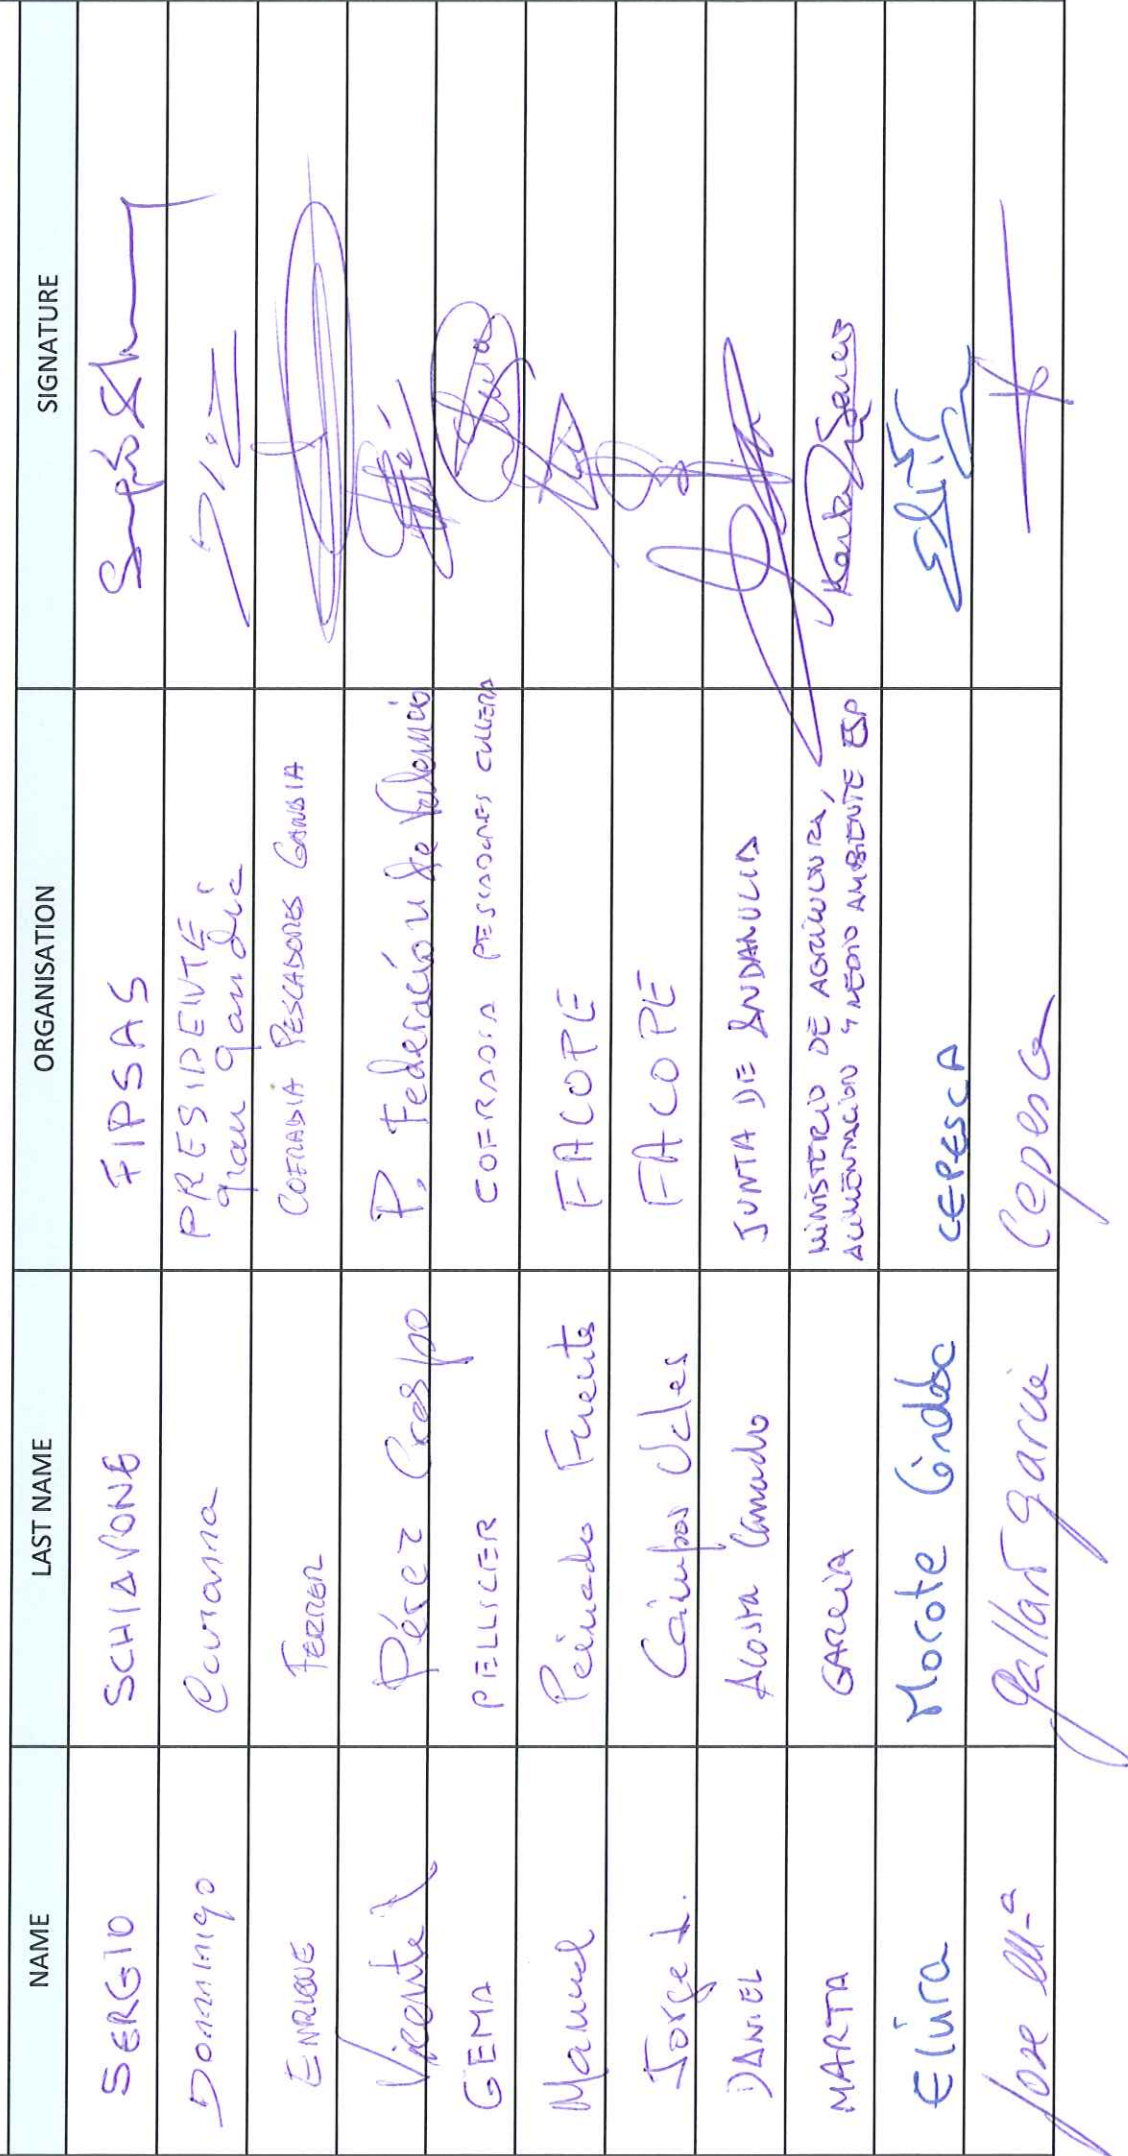 NAME LAST NAME ORGANISATION SIGNATURE
SERGIO SCHIAVONE FIPSAS
Dommingo Ciurana PRESIDENTE
gran gandia
ENRIQUE FERRER COFRADIA PESCADORES GANDIA
Vicente Pérez Crespo P. Federación de Valencia
GEMA PELLICER COFRADIA PESCADORES CULLERA
Manuel Peinado Fuentes FACOPE
Jorge L. Campos Ucles FACOPE
DANIEL Acosta Camacho JUNTA DE ANDALUCIA
MARTA GARCIA MINISTERIO DE AGRICULTURA,
ALIMENTACION Y MEDIO AMBIENTE ESP
Elvira Morote Córdoba CEPESCA
Jose Mª Gallart Garcia Cepesca